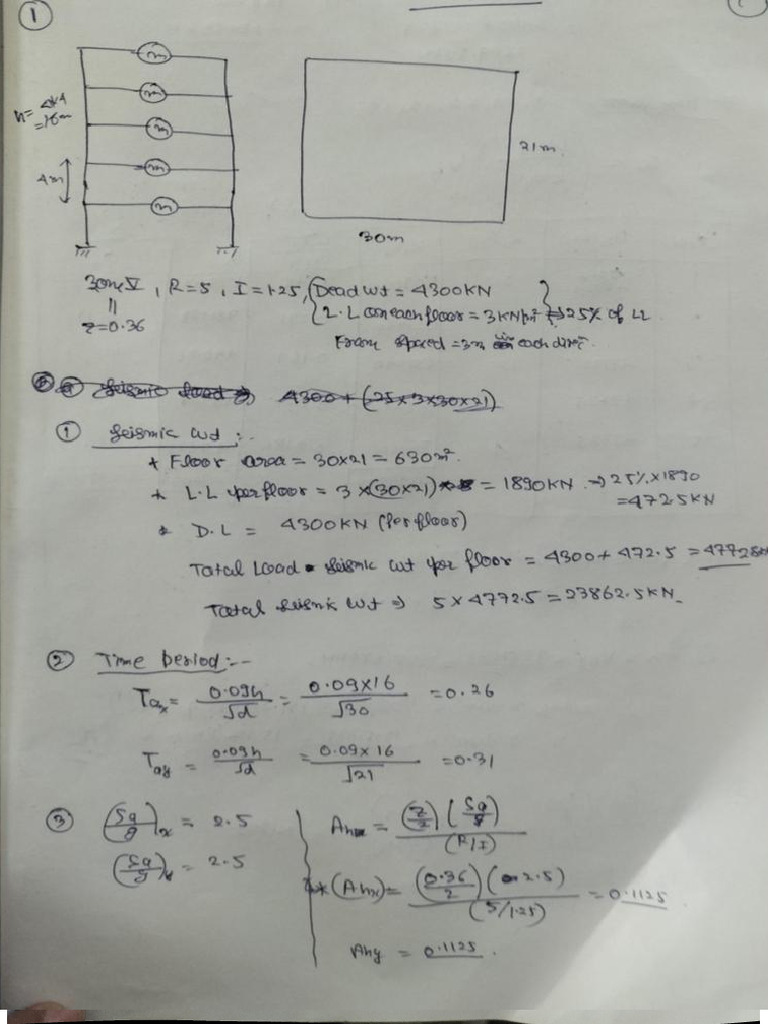 1
m
m
m
m
m
h= 4x4
=16m
4m
21m
30m
Zone V, R=5, I=1.25, {Dead wt = 4300KN
|| {L.L on each floor = 3KN/m² } ⇒ 25% of LL
z=0.36
Fram spaced = 3m each dirⁿ.
Seismic load ⇒ 4300+(25×3×30×21)
① Seismic wt :-
* Floor area = 30×21 = 630m².
* L.L per floor = 3×(30×21) = 1890KN ⇒ 25%×1890
=472.5KN
* D.L = 4300KN (Per floor)
Total Load Seismic wt per floor = 4300+472.5 = 4772.5KN
Total Seismic wt ⇒ 5×4772.5=23862.5KN
② Time Period :-
Tax = 0.09h/√d = 0.09×16/√30 = 0.26
Tay = 0.09h/√d = 0.09×16/√21 = 0.31
③ (Sa/g)x = 2.5
(Sa/g)y = 2.5
Ah = (z/2)(Sa/g)/(R/I)
*(Ahx) = (0.36/2)(2.5)/(5/1.25) = 0.1125
Ahy = 0.1125.